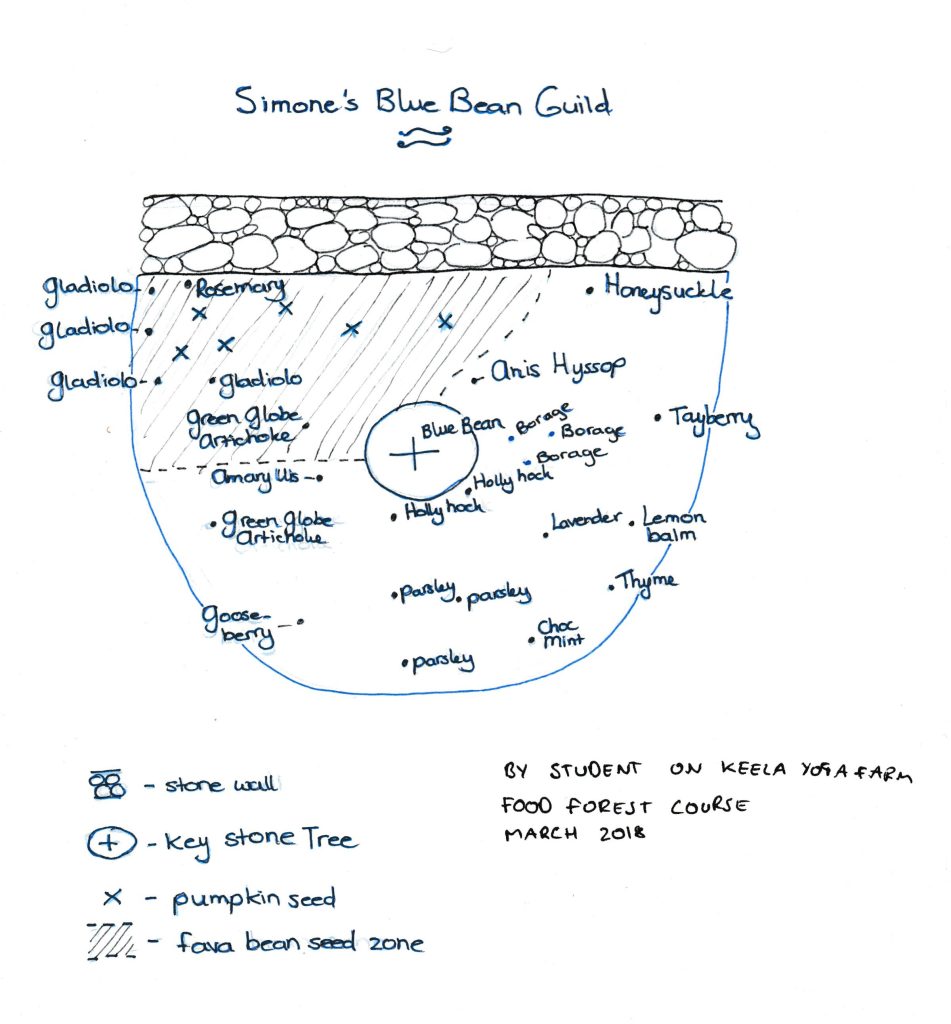 Simone's Blue Bean Guild
gladiolo
Rosemary
Honeysuckle
gladiolo
gladiolo
gladiolo
Anis Hyssop
green globe
Artichoke
Blue Bean
Borage
Borage
Borage
Tayberry
Amaryllis
Hollyhock
Hollyhock
green globe
Artichoke
Lavender
Lemon
balm
parsley
parsley
Thyme
Goose-
berry
Choc
mint
parsley
- stone wall
- Key stone Tree
- pumpkin seed
- fava bean seed zone
BY STUDENT ON KEELA YOGA FARM
FOOD FOREST COURSE
MARCH 2018